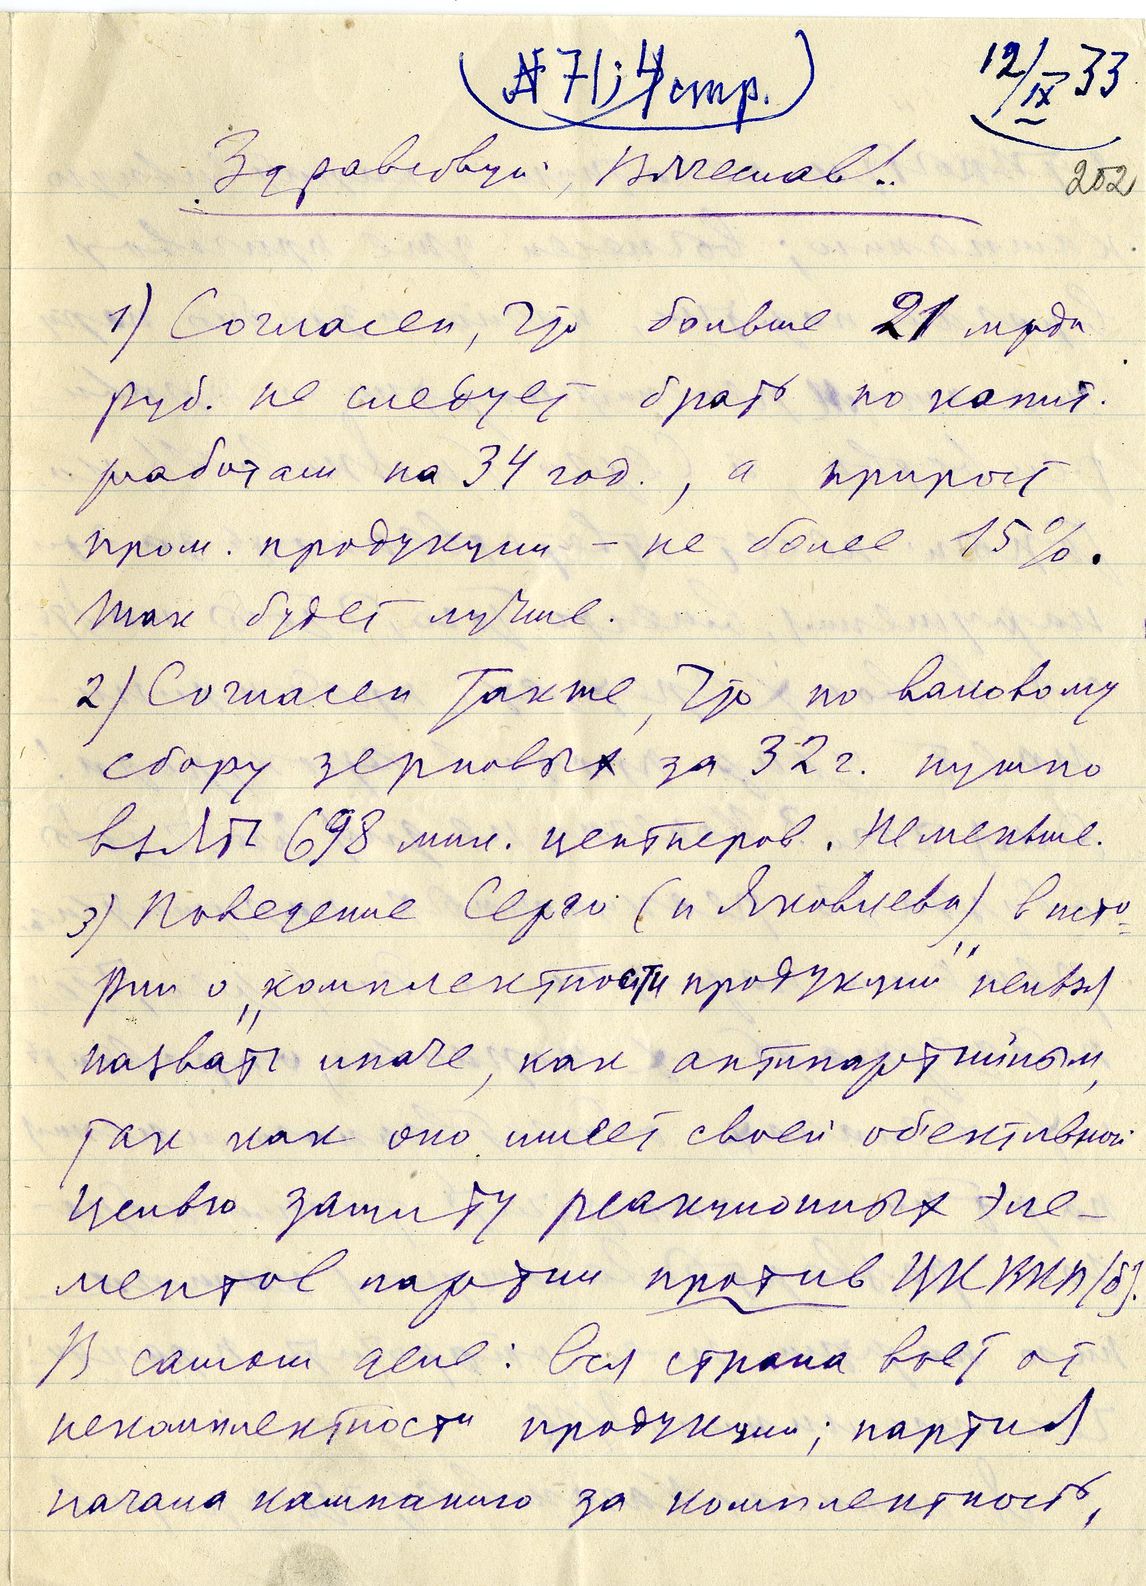 (№ 71; 4 стр.)
12/IX 33
202
Здравствуй, Вячеслав!
1) Согласен, что больше 21 млрд
руб. не следует брать по капит.
работам на 34 год., а прирост
пром. продукции – не более 15%.
Так будет лучше.
2) Согласен также, что по валовому
сбору зерновых за 32 г. нужно
взять 698 мил. центнеров. Не меньше.
3) Поведение Серго (и Яковлева) в исто-
рии о „комплектности продукции" нельзя
назвать иначе, как антипартийным,
так как оно имеет своей объективной
целью защиту реакционных эле-
ментов партии против ЦК ВКП(б).
В самом деле: вся страна воет от
некомплектности продукции; партия
начала кампанию за комплектность,